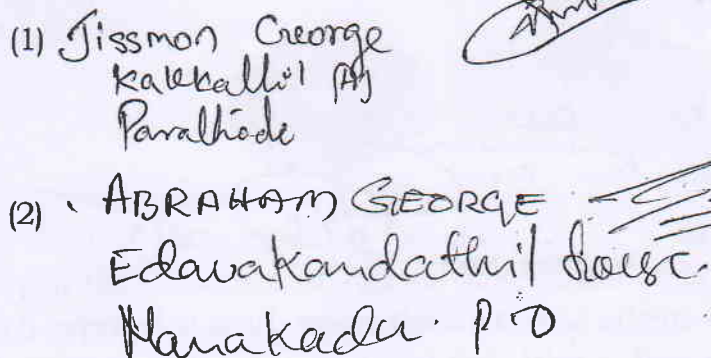 (1) Jissmon George
Kalekallil (H)
Parathode
(2) ABRAHAM GEORGE
Edavakandathil house
Manakadu. P.O